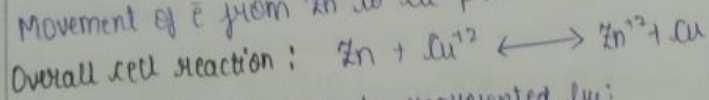 Movement of ē from Zn to Cu
Overall cell reaction : Zn + Cu⁺² ⟷ Zn⁺² + Cu